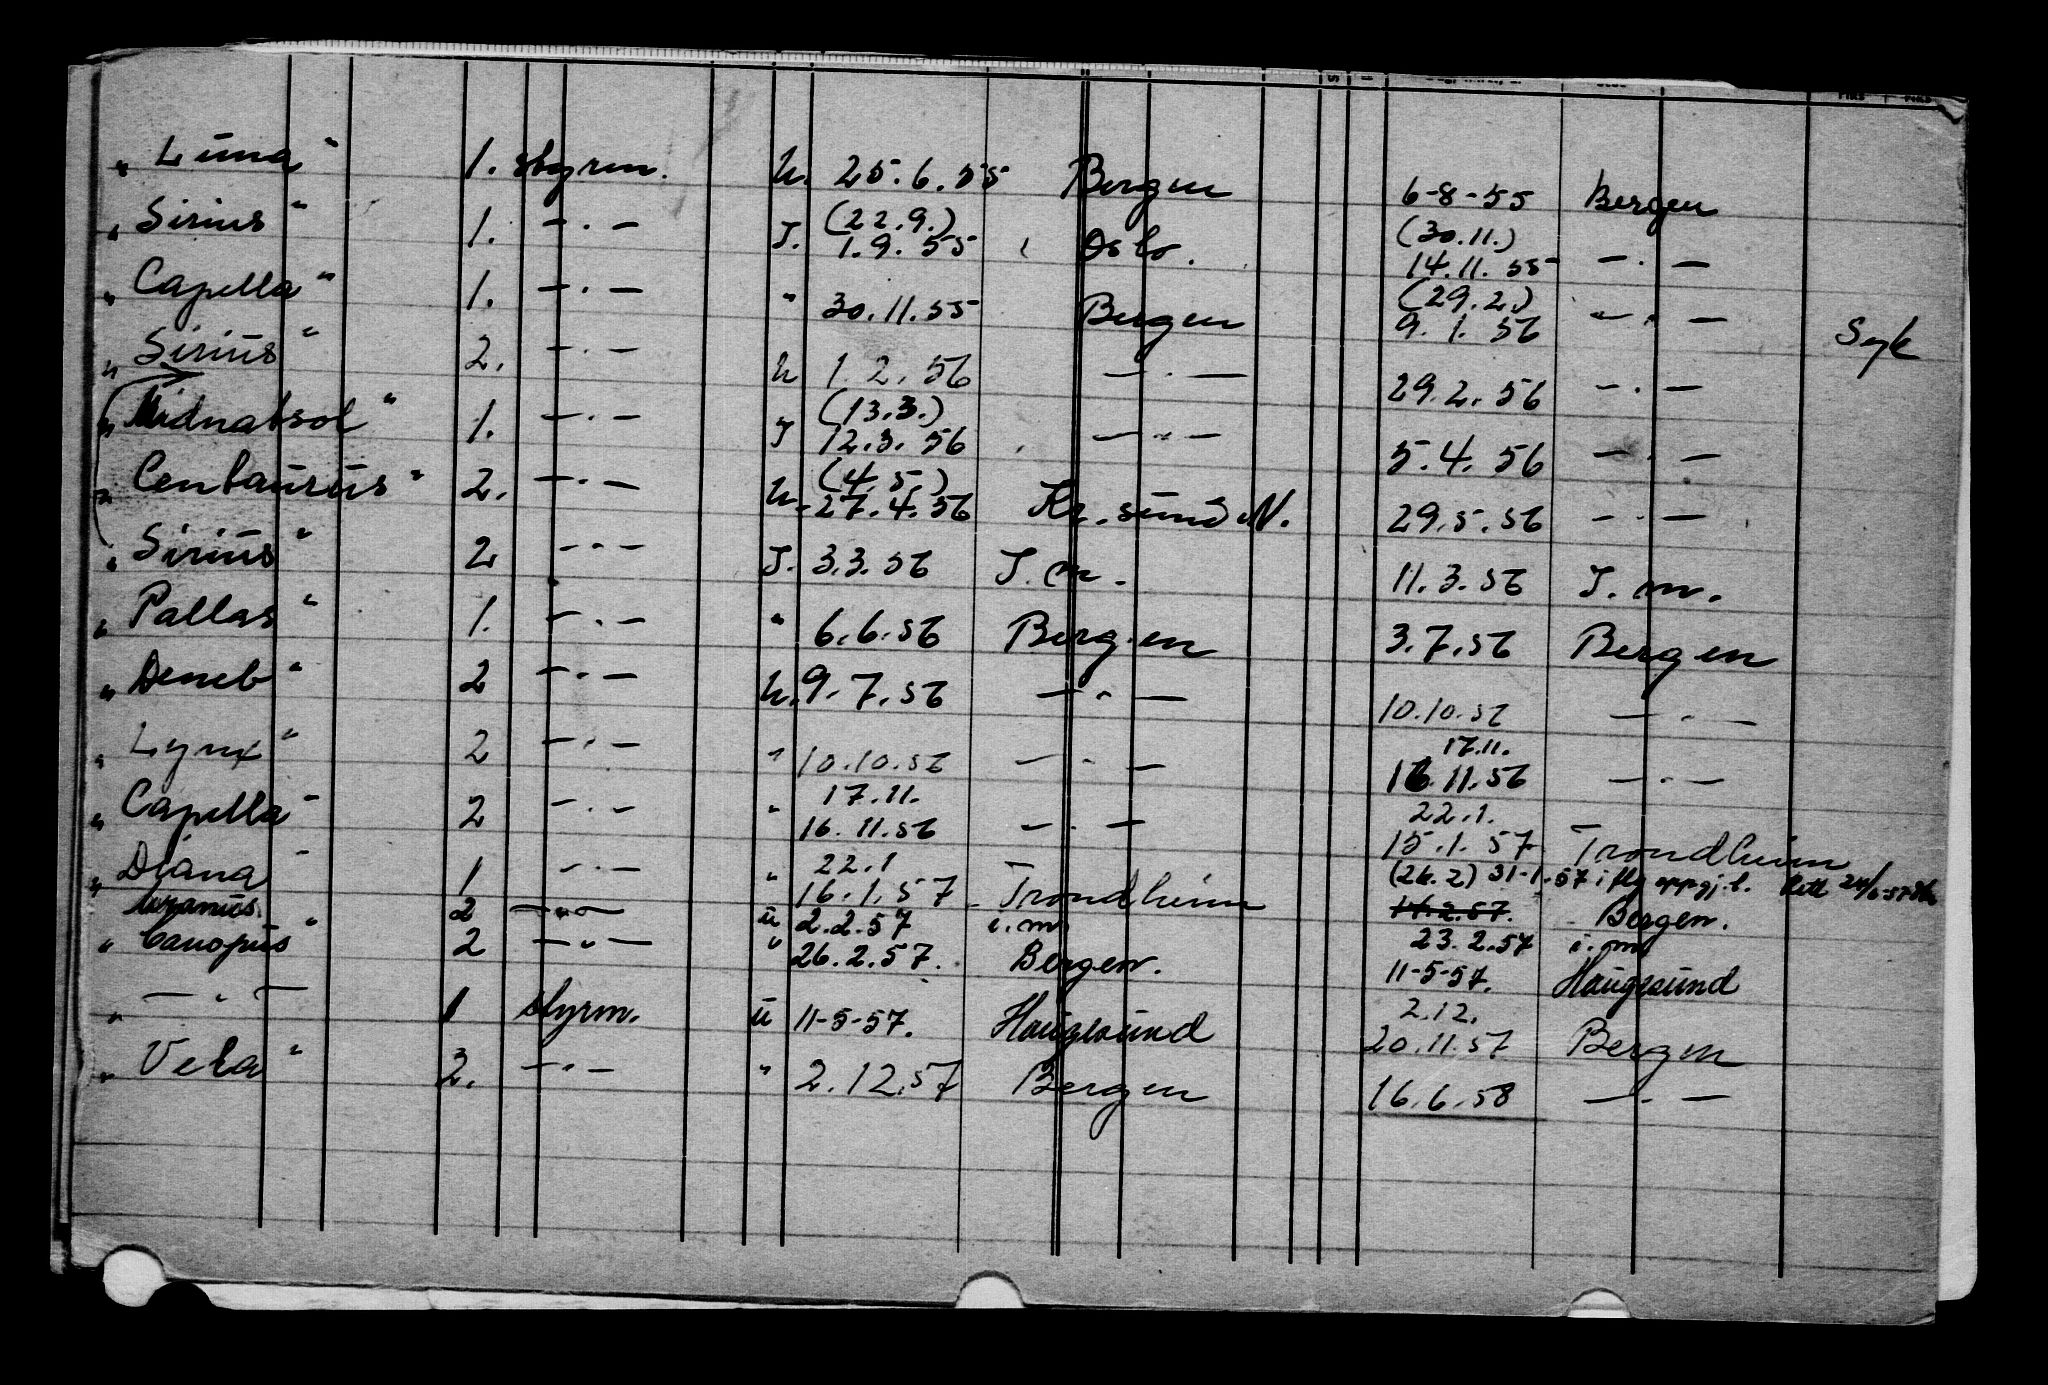 " Luna " 1. styrm. U. 25.6.55 Bergen 6-8-55 Bergen
" Sirius " 1. — " — I. (22.9.) 1.9.55 Oslo. (30.11.) 14.11.55 — " —
" Capella " 1. — " — " 30.11.55 Bergen (29.2.) 9.1.56 — " — Syk
" Sirius " 2. — " — U 1.2.56 — " — 29.2.56 — " —
" Midnatsol " 1. — " — I (13.3.) 12.3.56 — " — 5.4.56 — " —
" Centaurus " 2. — " — U. (4.5.) 27.4.56 Kr.sund N. 29.5.56 — " —
" Sirius " 2 — " — I. 3.3.56 I.m. 11.3.56 I.m.
" Pallas " 1. — " — " 6.6.56 Bergen 3.7.56 Bergen
" Deneb " 2 — " — U. 9.7.56 — " — 10.10.56 — " —
" Lynx " 2 — " — " 10.10.56 — " — 17.11. 16.11.56 — " —
" Capella " 2 — " — " 17.11. 16.11.56 — " — 22.1. 15.1.57 Trondheim
" Diana " 1 — " — " 22.1 16.1.57 Trondheim (26.2) 31-1-57 i flg oppgj.l. Rett
Uranus 2 — " — U 2.2.57 i.m. 11.2.57. Bergen.
23.2.57 i.m.
" Canopus " 2 — " — " 26.2.57. Bergen. 11-5-57. Haugesund
" — " — 1 styrm. U 11-5-57. Haugesund 2.12. 20.11.57 Bergen
" Vela " 2. — " — " 2.12.57 Bergen 16.6.58 — " —